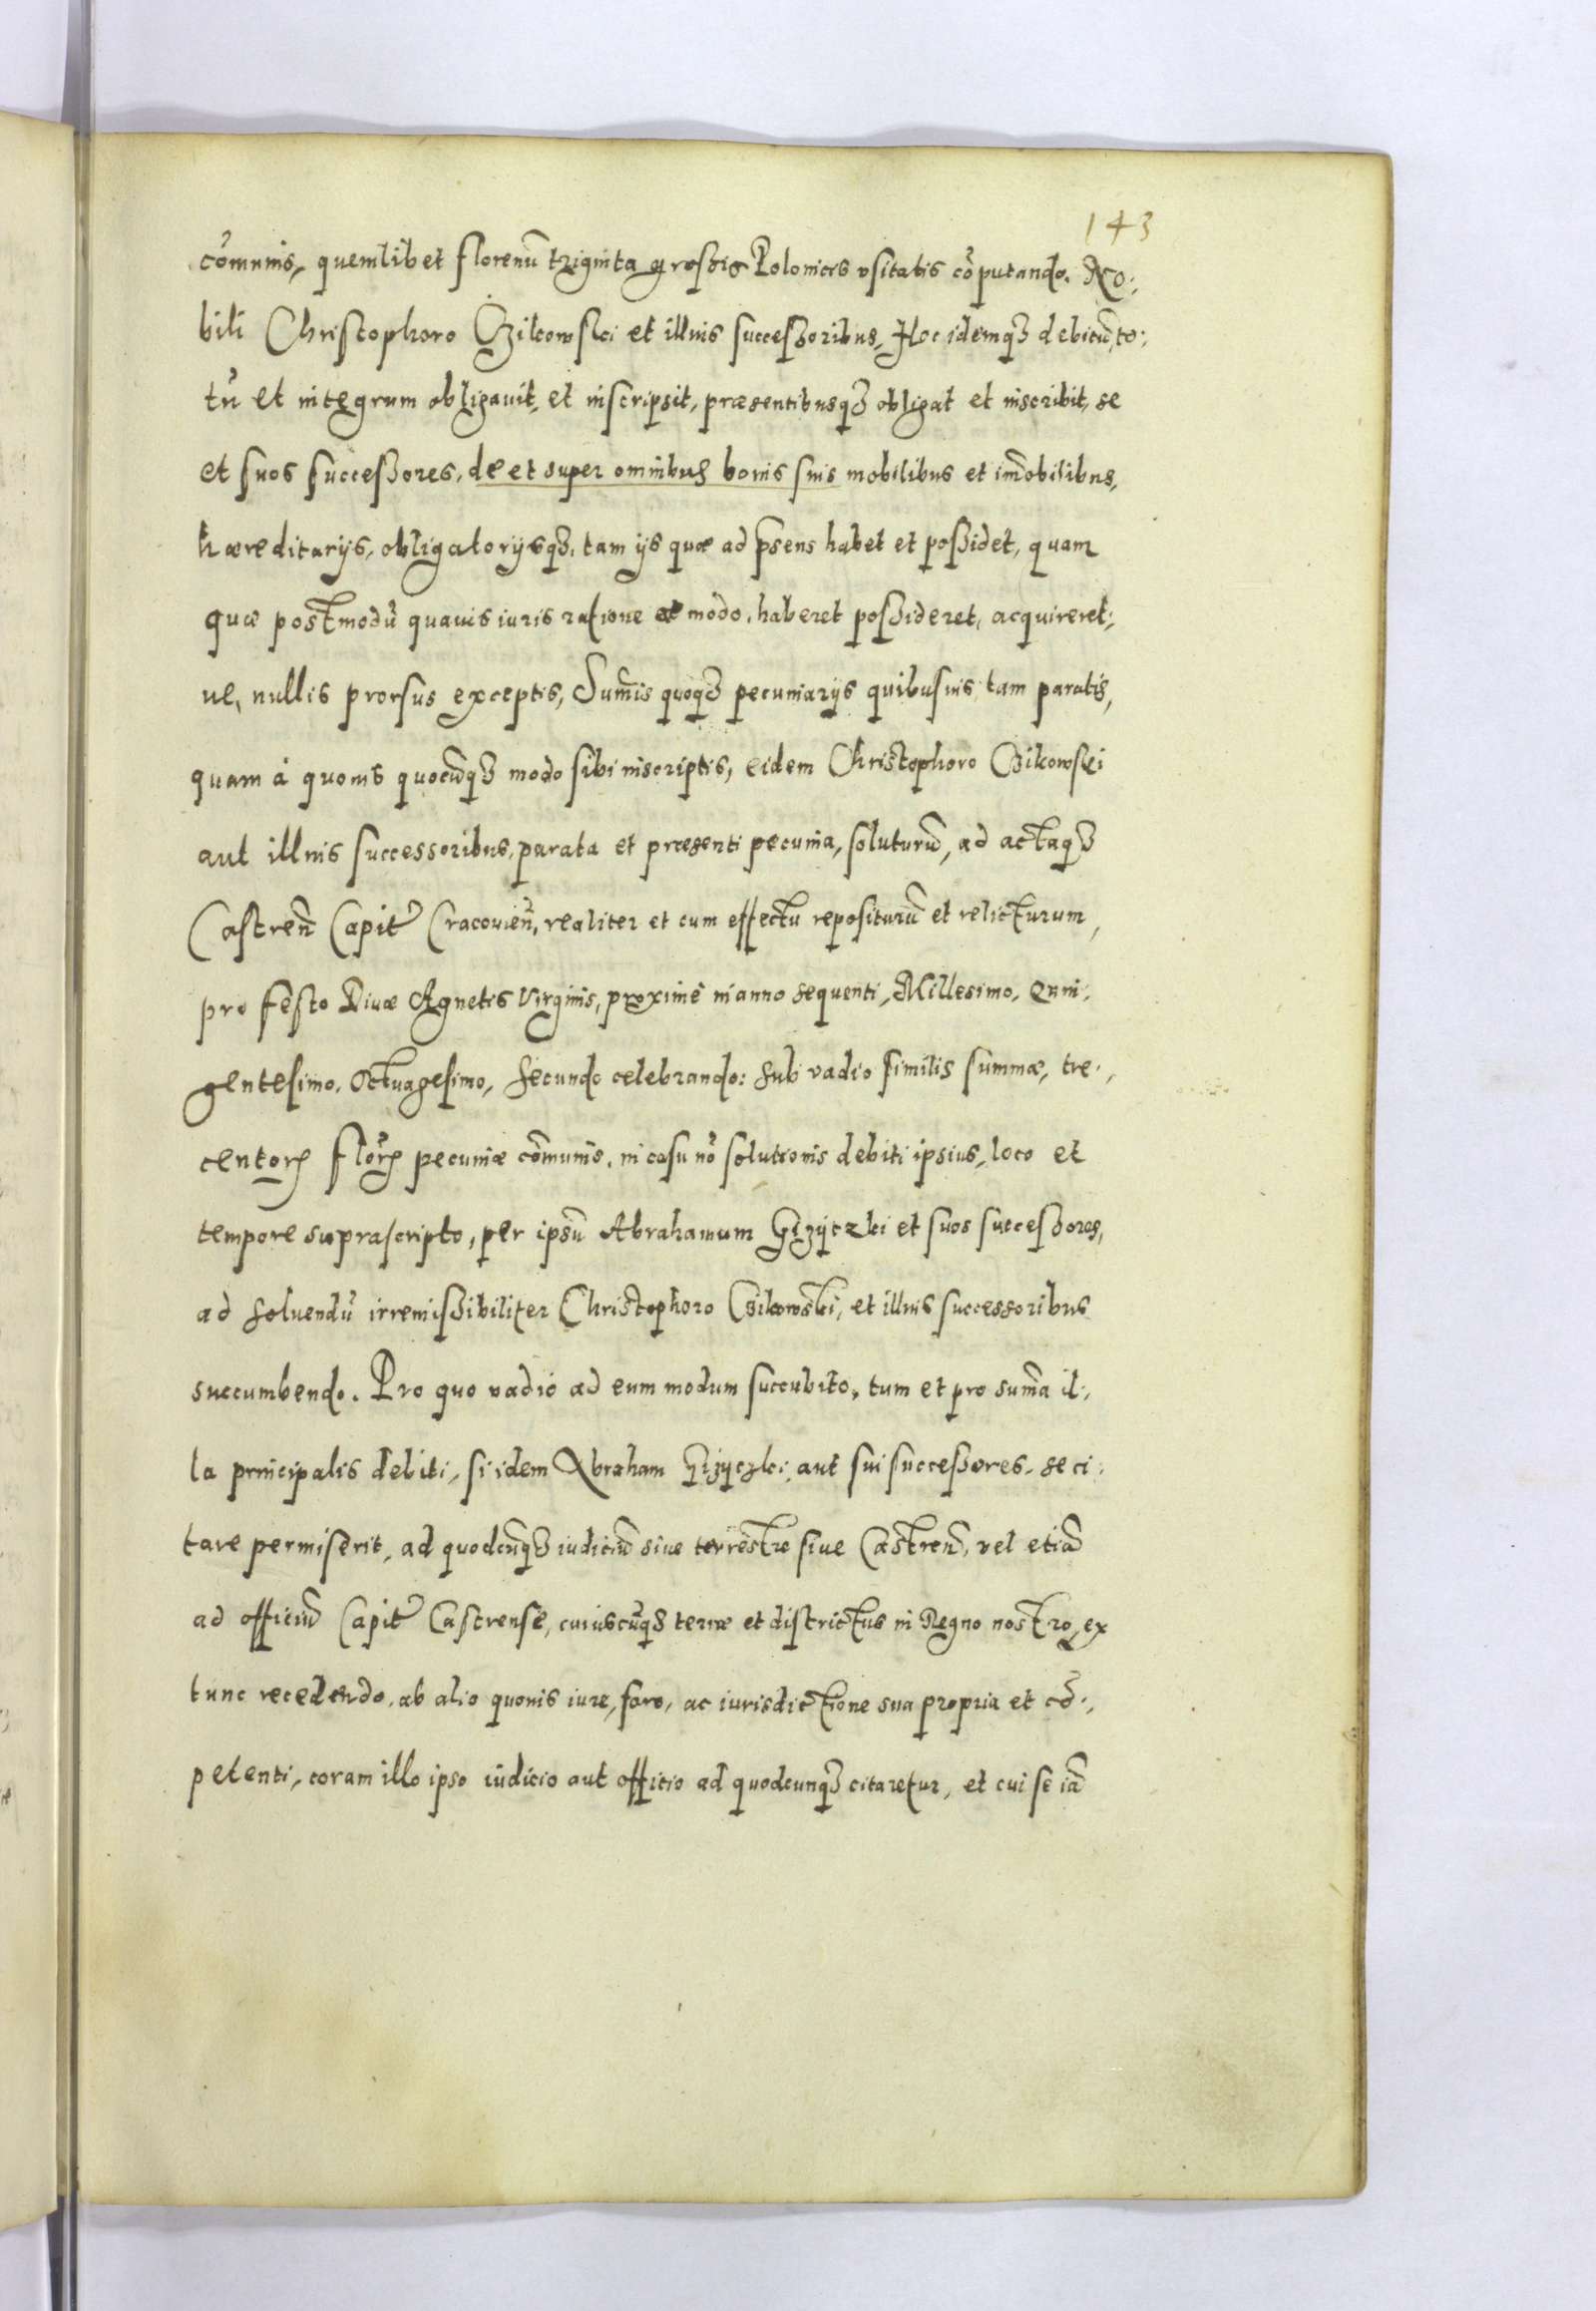 143
cõmunis, quemlibet florenũ triginta grossis Polonicis vsitatis cõputando. No:
bili Christophoro Czikowski et illius successoribus, Hoc idemqʒ debitũ, to:
tũ et integrum obligauit, et inscripsit, præsentibusqʒ obligat et inscribit, se
et suos successores, de et super omnibus bonis suis mobilibus et im̃obilibus,
hæreditarijs, obligatorijsqʒ, tam ijs quæ ad p̃sens habet et possidet, quam
quæ postmodũ quauis iuris ratione et modo, haberet possideret, acquireret:
ue, nullis prorsus exceptis, Sum̃is quoqʒ pecuniarijs quibusuis tam paratis,
quam à quouis quocũqʒ modo sibi inscriptis, eidem Christophoro Czikowski
aut illius successoribus, parata et præsenti pecunia, soluturũ, ad actaqʒ
Castreñ Capit̃ Cracouieñ, realiter et cum effectu repositurũ et relicturum,
pro festo Diuæ Agnetis Virginis, proximè in anno sequenti, Millesimo, Quin:
gentesimo, Octuagesimo, secundo celebrando: sub vadio similis summæ, tre:
centoꝝ floꝝ pecuniæ cõmunis, in casu nõ solutionis debiti ipsius, loco et
tempore suprascripto, per ipsũ Abrahamum Gizyczki et suos successores,
ad soluendũ irremissibiliter Christophoro Czikowski, et illius successoribus
succumbendo. Pro quo vadio ad eum modum succubito, tum et pro sum̃a il:
la principalis debiti, si idem Abraham Gizyczki, aut sui successores, se ci:
tare permiserit, ad quodcũqʒ iudiciũ siue terrestre siue Castreñ, vel etiã
ad officiũ Capit̃ Castrense, cuiuscũqʒ terræ et districtus in Regno nostro, ex
tunc recedendo, ab alio quouis iure, foro, ac iurisdictione sua propria et cõ:
petenti, coram illo ipso iudicio aut officio ad quodcunqʒ citaretur, et cui se iã